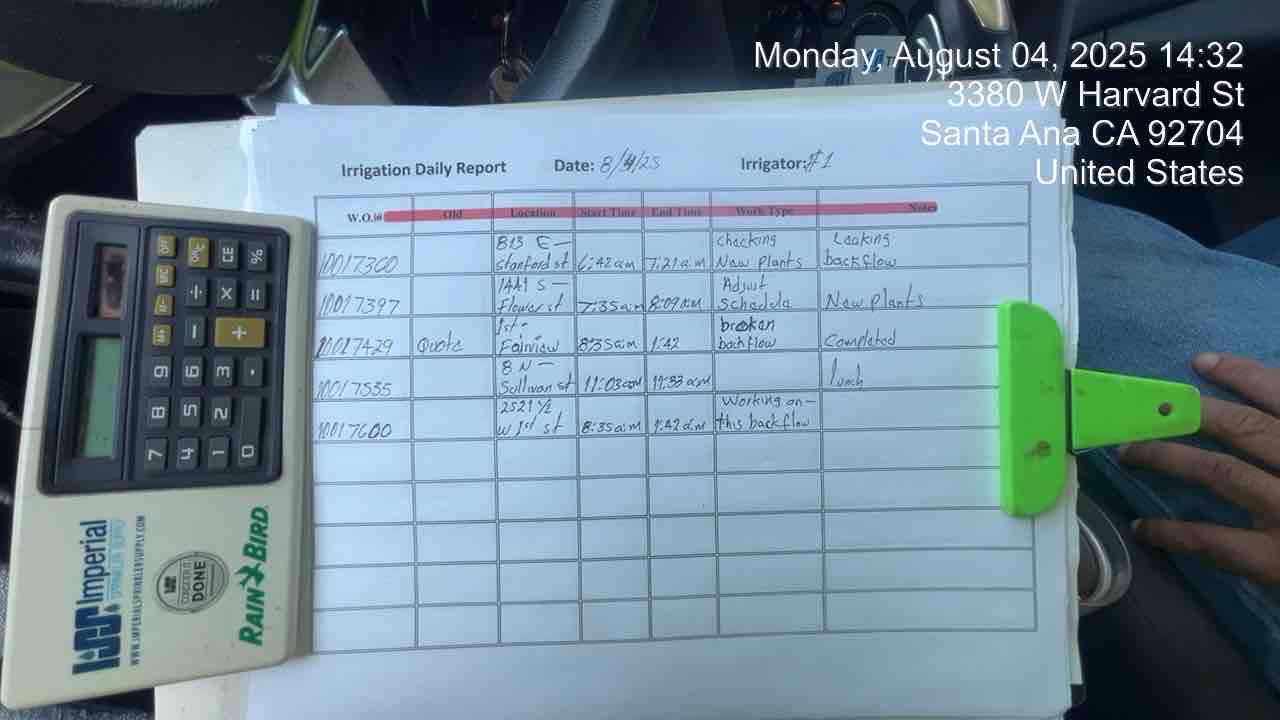 Monday, August 04, 2025 14:32
3380 W Harvard St
Santa Ana CA 92704
United States
Irrigation Daily Report Date: 8/4/25 Irrigator: #1
W.O.# Old Location Start Time End Time Work Type Notes
813 E- Checking Leaking
10017360 stanford st 6:42 am 7:21 a.m New Plants backflow
1441 S- Adjust
10017397 Flower st 7:35 a.m 8:09 a.m Schedule New plants
1st- broken
10017429 Quote Fairview 8:35 a.m 1:42 backflow Completed
8 N-
10017535 Sullivan st 11:03 am 11:33 a.m lunch
2521 1/2 Working on-
10017600 w 1st st 8:35 a.m 1:42 a.m this backflow
OFF ON/C CE %
MRC M- M+
÷ × =
- +
9 6 3 .
8 5 2
7 4 1 0
Imperial
SPRINKLER SUPPLY
WWW.IMPERIALSPRINKLERSUPPLY.COM
CONSIDER IT
DONE
RAIN BIRD